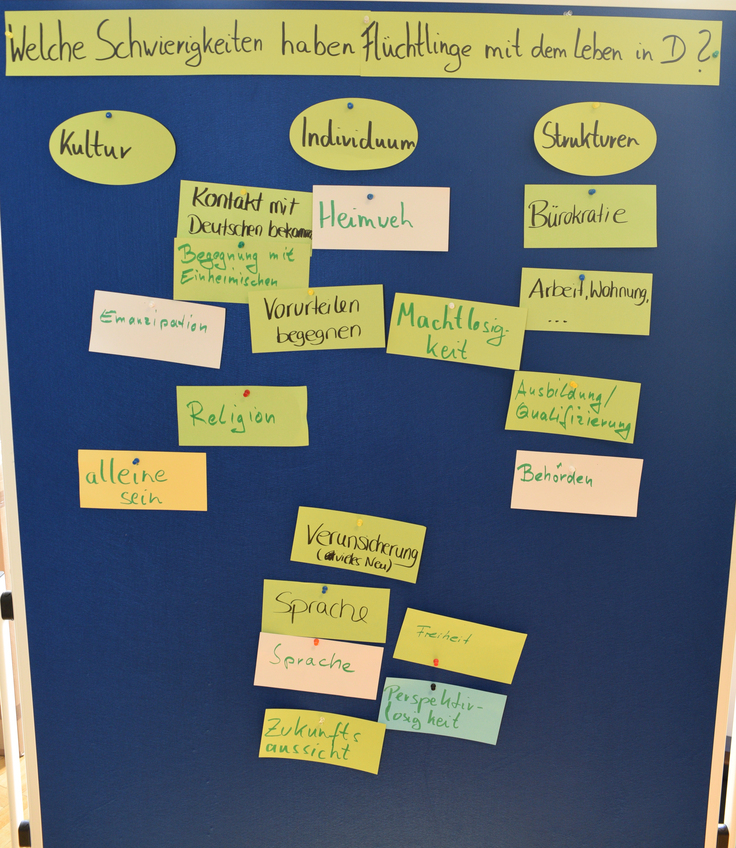 Welche Schwierigkeiten haben Flüchtlinge mit dem Leben in D?
Kultur
Individuum
Strukturen
Kontakt mit
Deutschen bekommen
Heimweh
Bürokratie
Begegnung mit
Einheimischen
Arbeit, Wohnung,
...
Emanzipation
Vorurteilen
begegnen
Machtlosig-
keit
Ausbildung/
Qualifizierung
Religion
alleine
sein
Behörden
Verunsicherung
vieles Neu)
Sprache
Freiheit
Sprache
Perspektiv-
losigkeit
Zukunfts
aussicht